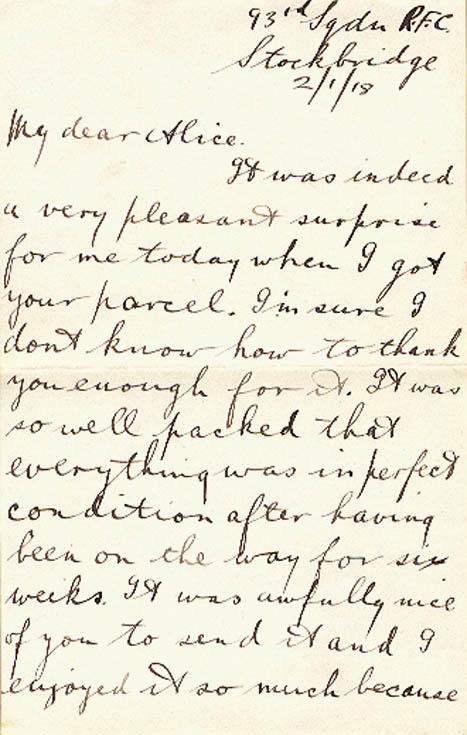 93rd Sqdn R.F.C.
Stockbridge
2/1/18
My dear Alice.
It was indeed
a very pleasant surprise
for me today when I got
your parcel. I'm sure I
don't know how to thank
you enough for it. It was
so well packed that
everything was in perfect
condition after having
been on the way for six
weeks. It was awfully nice
of you to send it and I
enjoyed it so much because